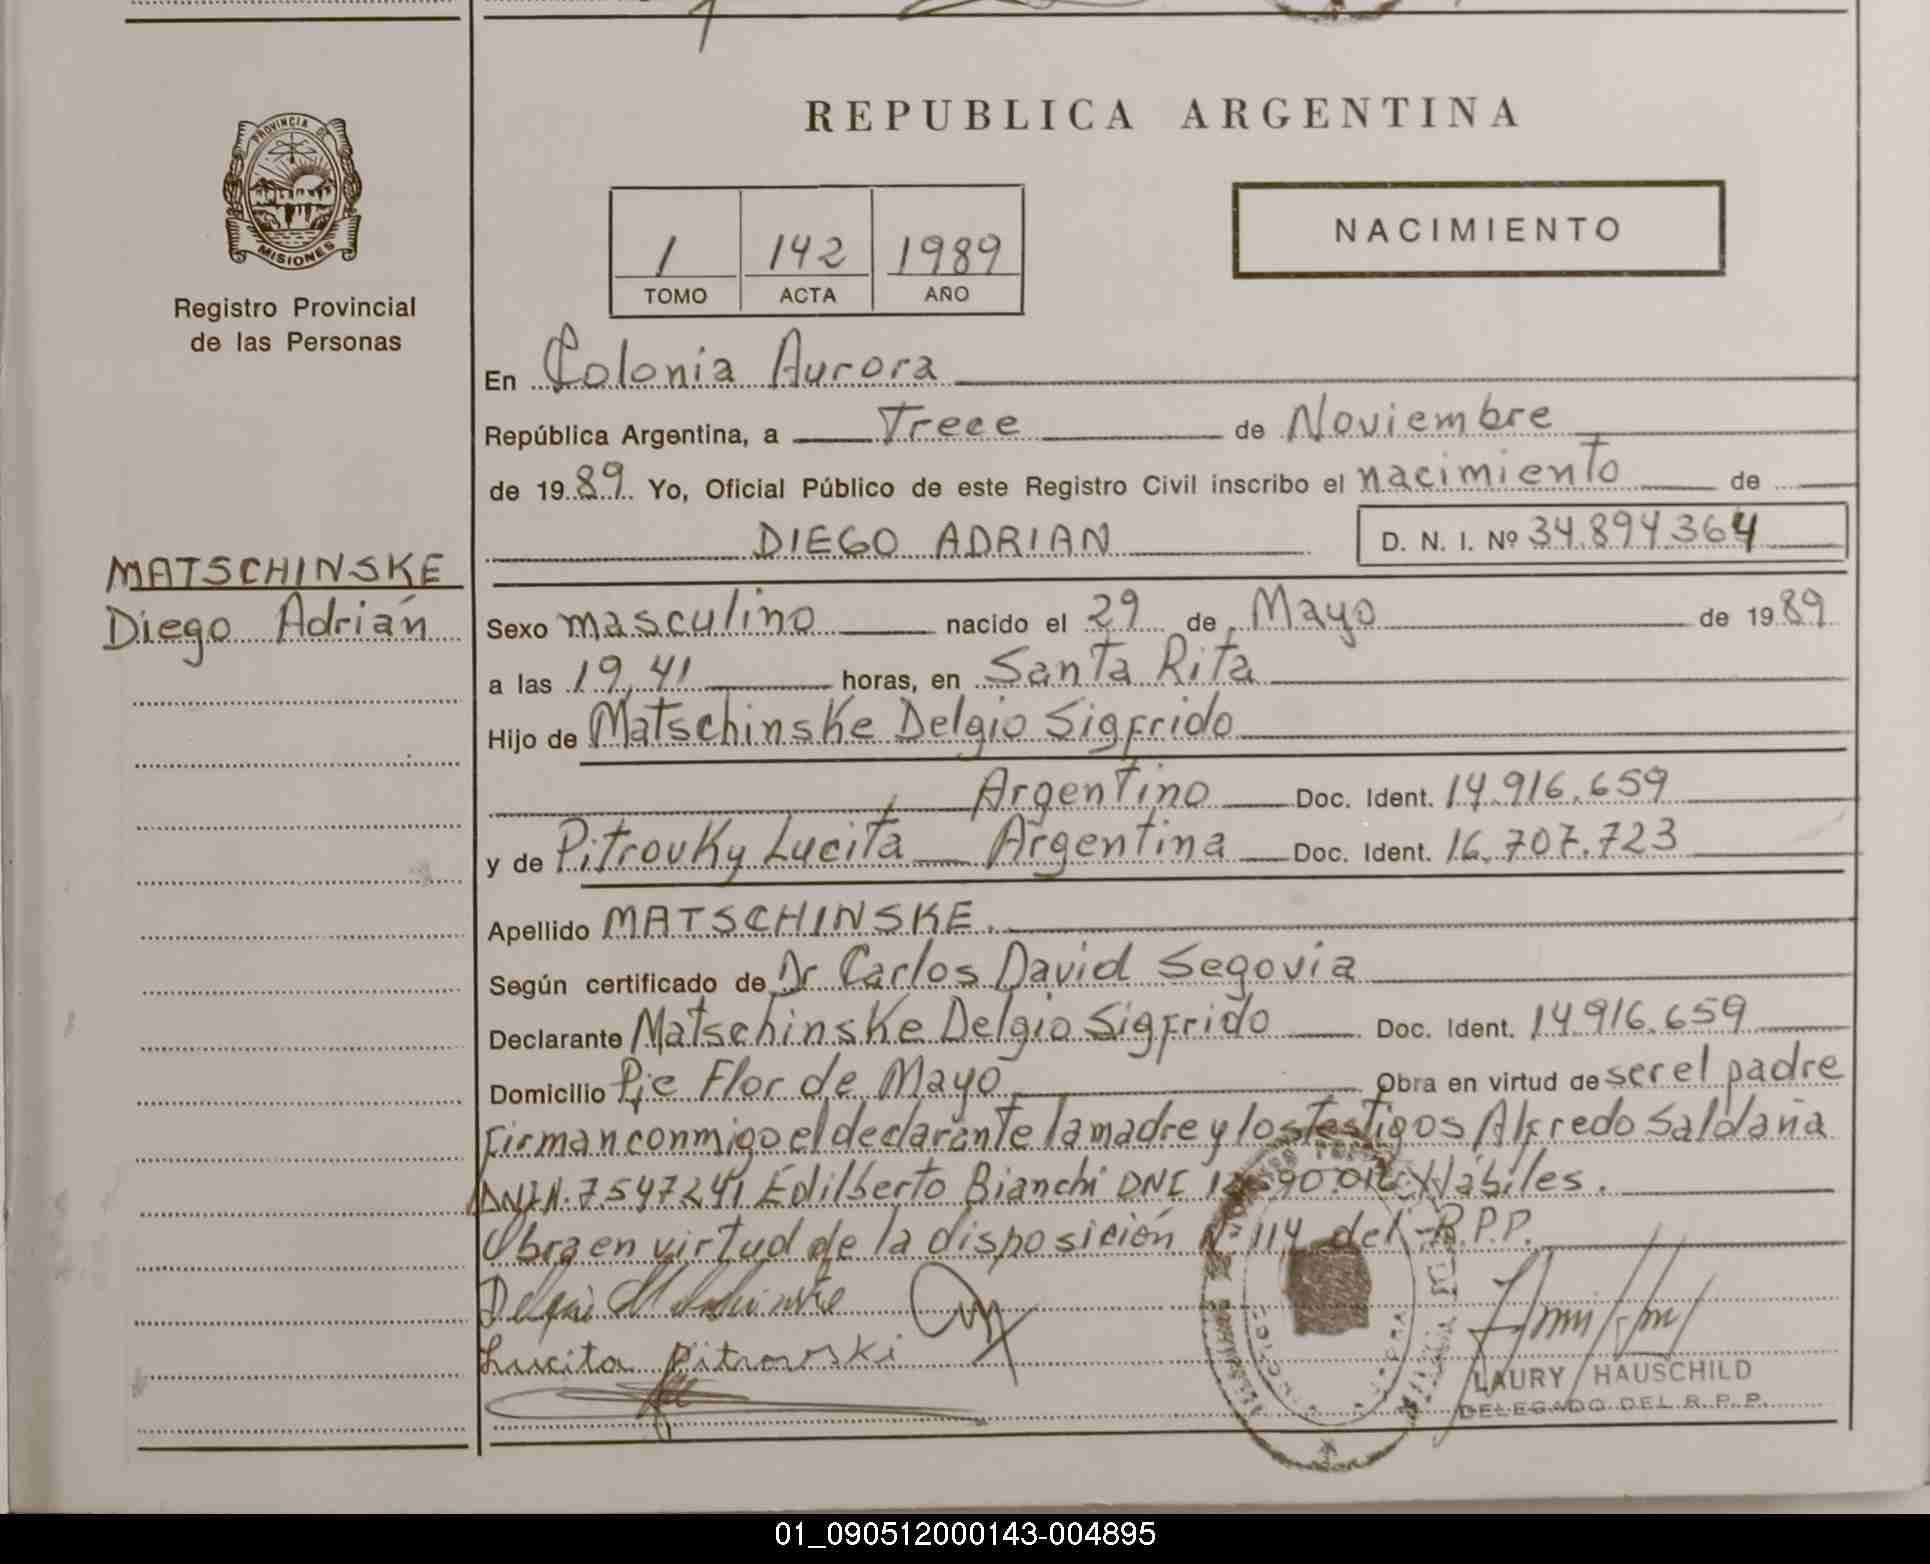 PROVINCIA DE
MISIONES
Registro Provincial
de las Personas
MATSCHINSKE
Diego Adrián
REPUBLICA ARGENTINA
NACIMIENTO
1 142 1989
TOMO ACTA AÑO
En Colonia Aurora
República Argentina, a Trece de Noviembre
de 1989. Yo, Oficial Público de este Registro Civil inscribo el nacimiento de
DIEGO ADRIAN D. N. I. Nº 34.894.364
Sexo masculino nacido el 29 de Mayo de 1989
a las 19,41 horas, en Santa Rita
Hijo de Matschinske Delgio Sigfrido
Argentino Doc. Ident. 14.916.659
y de Pitrovky Lucita Argentina Doc. Ident. 16.707.723
Apellido MATSCHINSKE.
Según certificado de Dr Carlos David Segovia
Declarante Matschinske Delgio Sigfrido Doc. Ident. 14.916.659
Domicilio Pje Flor de Mayo Obra en virtud de ser el padre
Firman conmigo el declarante la madre y los testigos Alfredo Saldaña
DNI N. 7.547241 Edilberto Bianchi DNI Hábiles.
Obra en virtud de la disposición Nº 114 del R.P.P.
Lucita Pitrowski
LAURY HAUSCHILD
DELEGADO DEL R. P. P.
01_090512000143-004895